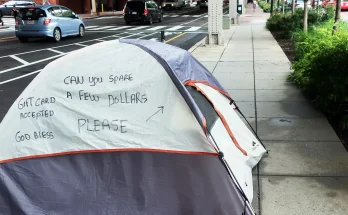 CAN YOU SPARE
A FEW DOLLARS
PLEASE
GIFT CARD
ACCEPTED
GOD BLESS